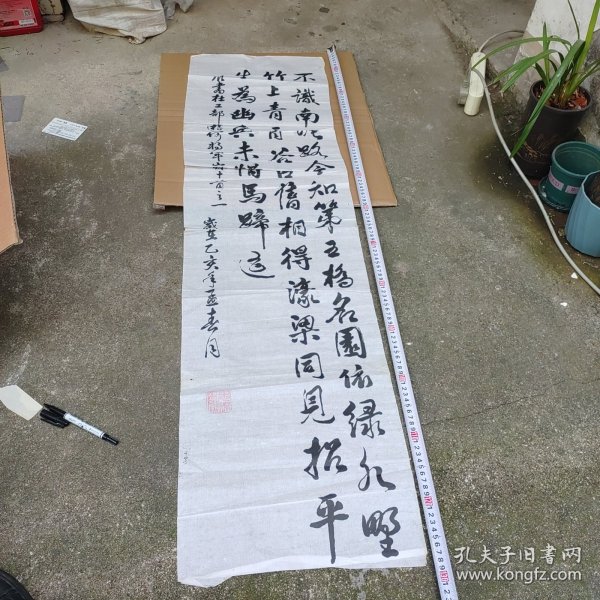 不識南塘路今知第五橋名園依緑水野
竹上青霄谷口舊相得濠梁同見招平
生為幽興未惜馬蹄遥
書杜工部遊何將軍山林十首之一 歲在乙亥年孟春月
孔夫子旧书网
www.kongfz.com